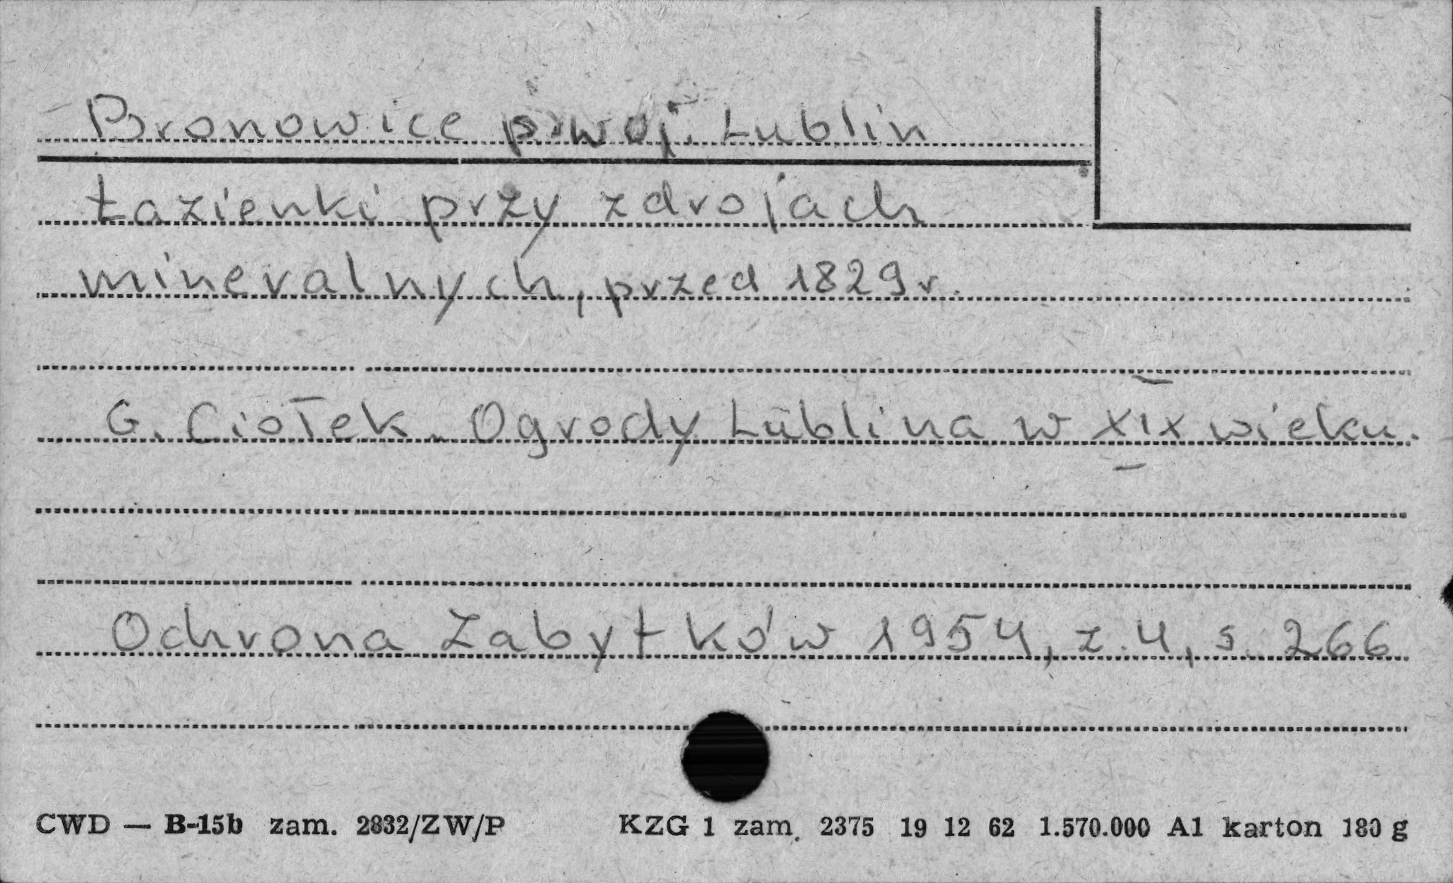 Bronowice p. woj. Lublin
Łazienki przy zdrojach
mineralnych, przed 1829 r.
G. Ciołek. Ogrody Lublina w XIX wieku.
Ochrona Zabytków 1954, z. 4, s. 266
CWD — B-15b zam. 2832/ZW/P KZG 1 zam. 2375 19 12 62 1.570.000 A1 karton 180 g